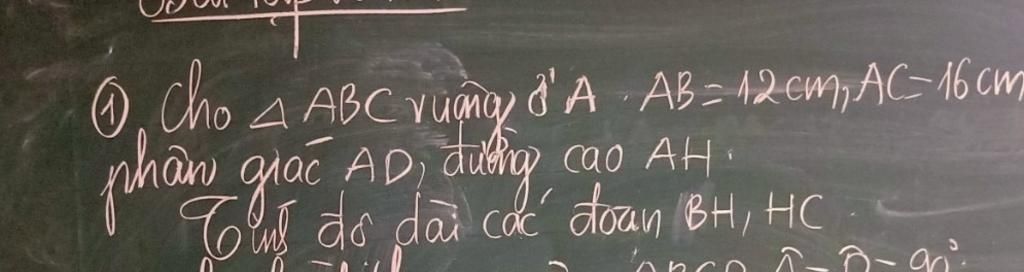 ① Cho △ ABC vuông ở A. AB = 12 cm, AC = 16 cm
phân giác AD, đường cao AH.
Tính độ dài các đoạn BH, HC